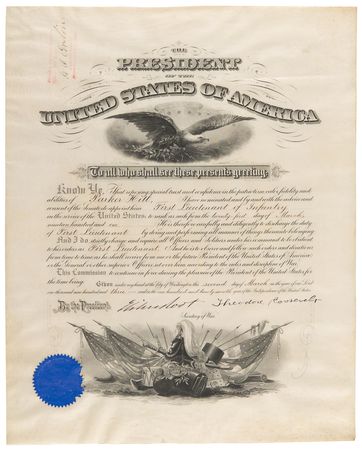 THE
PRESIDENT
OF THE
UNITED STATES OF AMERICA
To all who shall see these presents greeting:
Know Ye, That reposing special trust and confidence in the patriotism, valor, fidelity and
abilities of Parker Hitt, I have nominated and by and with the advice and
consent of the Senate do appoint him First Lieutenant of Infantry
in the service of the United States: to rank as such from the first day of March,
nineteen hundred and He is therefore carefully and diligently to discharge the duty
of First Lieutenant by doing and performing all manner of things thereunto belonging.
And I do strictly charge and require all Officers and Soldiers under his command to be obedient
to his orders as First Lieutenant. And he is to observe and follow such orders and directions
from time to time as he shall receive from me or the future President of the United States of America
or the General or other superior Officers set over him according to the rules and discipline of War.
This Commission to continue in force during the pleasure of the President of the United States for
the time being.
Given under my hand at the City of Washington this second day of March in the year of our Lord
one thousand nine hundred and three and in the one hundred and year of the Independence of the United States.
By the President:
Elihu Root Theodore Roosevelt
Secretary of War.